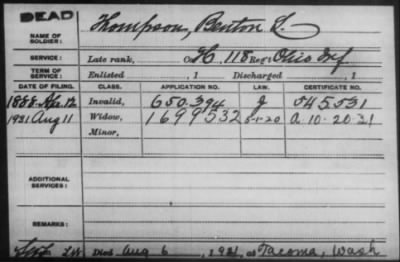 DEAD
NAME OF SOLDIER: Thompson, Benton
SERVICE: Late rank, Co H, 118 Reg't Ohio Inf
TERM OF SERVICE: Enlisted , 1 Discharged , 1
DATE OF FILING. CLASS. APPLICATION NO. LAW. CERTIFICATE NO.
1888 Apr 12 Invalid, 650.394 J 545531
1931 Aug 11 Widow, 1699532 5-1-20 A 10-20-31
Minor,
ADDITIONAL SERVICES:
REMARKS:
Died Aug 6, 1931, at Tacoma, Wash